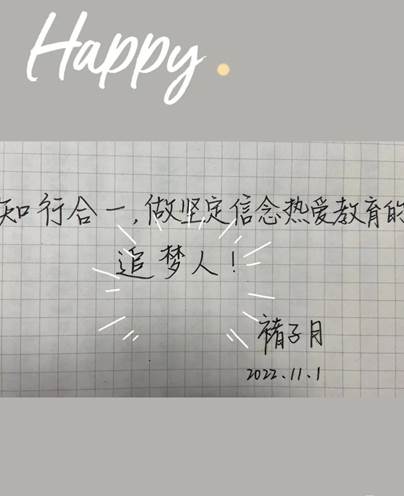 Happy.
知行合一,做坚定信念热爱教育的
追梦人!
褚子月
2022.11.1